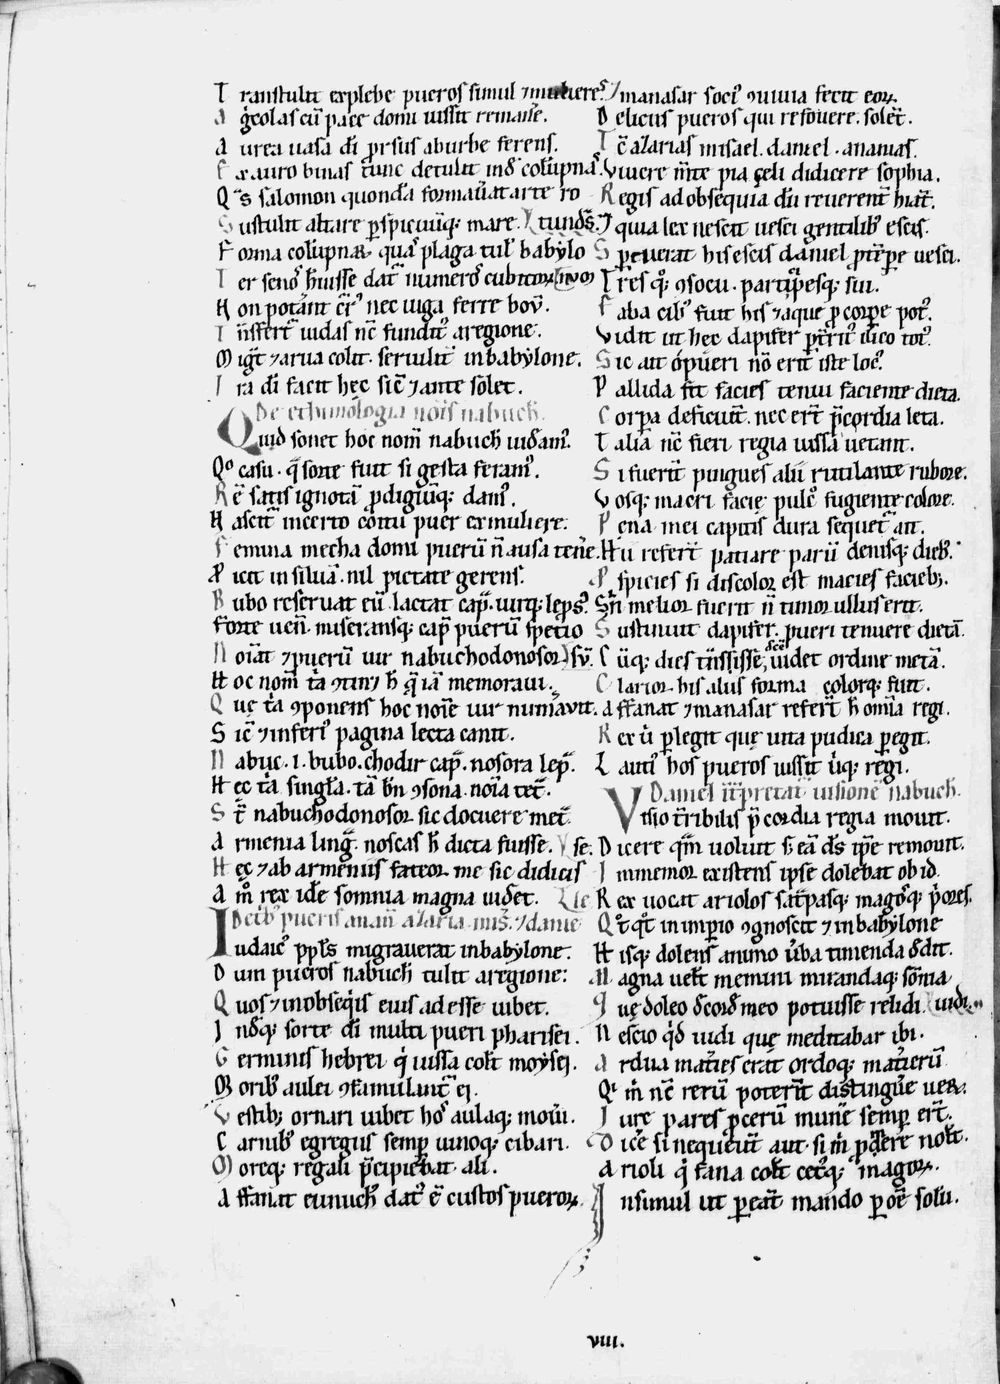 Transtulit explebe pueros simul ⁊ mulieres.
Ag̾colas cū pace domi iussit remane̾.
Aurea uasa dī prsus aburbe ferens.
Ex auro binas tunc detulit inđ colūpnas.
Qͣs salomon quonđa formau̾at arte ro
Sustulit altare pspicuūq; mare. tunđs.
Forma colūpnaꝝ quaˢ plaga tulˢ babylo
Ter senoˢ h̄uisse dat̾ numeroˢ cubitoꝝ nioꝝ
Non potant cr̄ˢ nec iuga ferre boū.
Tn̄sfert̾ iudas nc̄ fundit̾ aregione.
Mig̾t ⁊ arua colit. seruiit inbabylone.
Ira dī facit hęc sic̄ ⁊ ante solet.
De ethimologia noīs nabuch̄.
Quid sonet hoc nom̄ nabuch̄ uiđamˢ.
Qͦ casu. q̄ sorte fuit si gesta feramˢ.
Rē satis ignotā pdigiūq; damˢ.
Nascit̾ incerto coitu puer ex muliere.
Femina mecha domi puerū n̄ ausa tene̾.
Picit in siluā. nil pietate gerens.
Bubo reseruat eū. lactat cap̄. uirq; lepsˢ.
Forte uen̄. miseransq; cap̄ puerū spetio
Noīat ⁊ puerū uir nabuchodonosor sū.
Hoc nom̄ t̾a ⁊tin ⁊ h̄ q̄ iā memoraui.
Quę t̾a ꝯponens hoc noīe uir num̾auit.
Sic̄ ⁊ inferiˢ pagina lecta canit.
Nabuc .i. bubo. chodir cap̄. nosora lep̄.
Hęc t̾a singl̾a. tā bn̄ ꝯsona. noīa tet̾.
St̄ nabuchodonosor sic docuere met̾.
Armenia ling̾. noscas h̄ dicta fuisse. se.
Hęc ⁊ ab armeniis fateor me sic didicis
Am̊ rex ide̾ somnia magna uidet. te
De trib̾ pueris anan̄ azaria. mis̾. ⁊ danie
Iudaicˢ ppl̄s migrauerat inbabylone.
Dum pueros nabuch̄ tulit aregione:
Quos ⁊ inobseq̇is eius adesse iubet.
Inđq; sorte dī multi pueri pharisei.
Germinis hebrei q̇ iussa col̄t moysei.
Moribˢ aulei ꝯfamulant̾ ei.
Vestib; ornari iubet hoˢ aulaq; mou̾i.
Carnibˢ egregiis semp̱ uinoq; cibari.
Moreq; regali p̄cipiebat ali.
Affanat eunuchˢ datˢ ē custos pueroꝝ
⁊ manasar sociˢ ꝯuiuia fecit eoꝝ.
Deliciis pueros qui refouere. solet̾.
Tc̄ azarias misael. daniel. ananias.
Viuere m̄te pia çeli didicere sophia.
Regis ad obsequia dū reuerent̾ hiat̾.
⁊ quia lex nescit uesci gentilibˢ escis.
Sp̄euerat his escis daniel pt̾p̱e uesci.
Tres q; ꝯsocii. participesq; sui.
Faba cibˢ fuit his ⁊ aque pcorp̱e potˢ.
Vidit ut hec dapifer pt̾ritˢ ilico totˢ.
Sic ait o pueri nō erit iste locˢ.
Pallida fit facies tenui faciente dieta.
Corpa deficiūt. nec er̄t p̄cordia leta.
Taliā nc̄ fieri regia iussa uetant.
Si fuerīt pingues alii rutilante rubore.
Vosq; macri facie pulcˢ fugiente colore.
Pena mei capitis dura sequet̾ ait.
Hii refer̄t patiare parū denisq; dieb̾.
Aspicies si discolor est macies facieb;.
Sn̄ melior fuerit n̄ timor ullus erit.
Sustinuit dapifer. pueri tenuere dietā.
Cūq; dies tn̄sisse, uidet ordine metā.
Clarior his aliis forma colorq; fuit.
Affanat ⁊ manasar refer̄t h̄ omīa regi.
Rex u̇ plegit quę uita pudica pegit.
Lautiˢ hos pueros iussit u̇q; regi.
Daniel īt̾pretat̾ uisionē nabuch̄.
Visio t̾ribilis p̄cordia regia mouit.
Dicere qm̄ uoluit sˢ eā dˢ ip̄e remouit.
Immemor existens ipse dolebat ob id.
Rex uocat ariolos sat̾pasq; magosˢq; p̾ores.
Q̊t q̊t in imp̱io ꝯgnoscit ⁊ inbabylone
Hisq; dolens animo u̾ba timenda đdit.
Magna uel̄t memini mirandaq; sōnia
Quę doleo đcorđ meo potuisse relidi uidi.
Nescio q̊d uidi quę meditabar ibi.
Ardua mat̾ies erat ordoq; mat̾ierū
Q̇ m̄ nc̄ rerū poterīt distingu̾e ueꝝ.
Iure pares pcerū mun̾e semp̱ er̄t.
Dic̾e si nequeūt aut si m̄ pdere nol̄t.
Arioli q̇ fana col̄t cet̾q; magoꝝ.
Insimul ut peāt mando poē̄ solū.
viii.